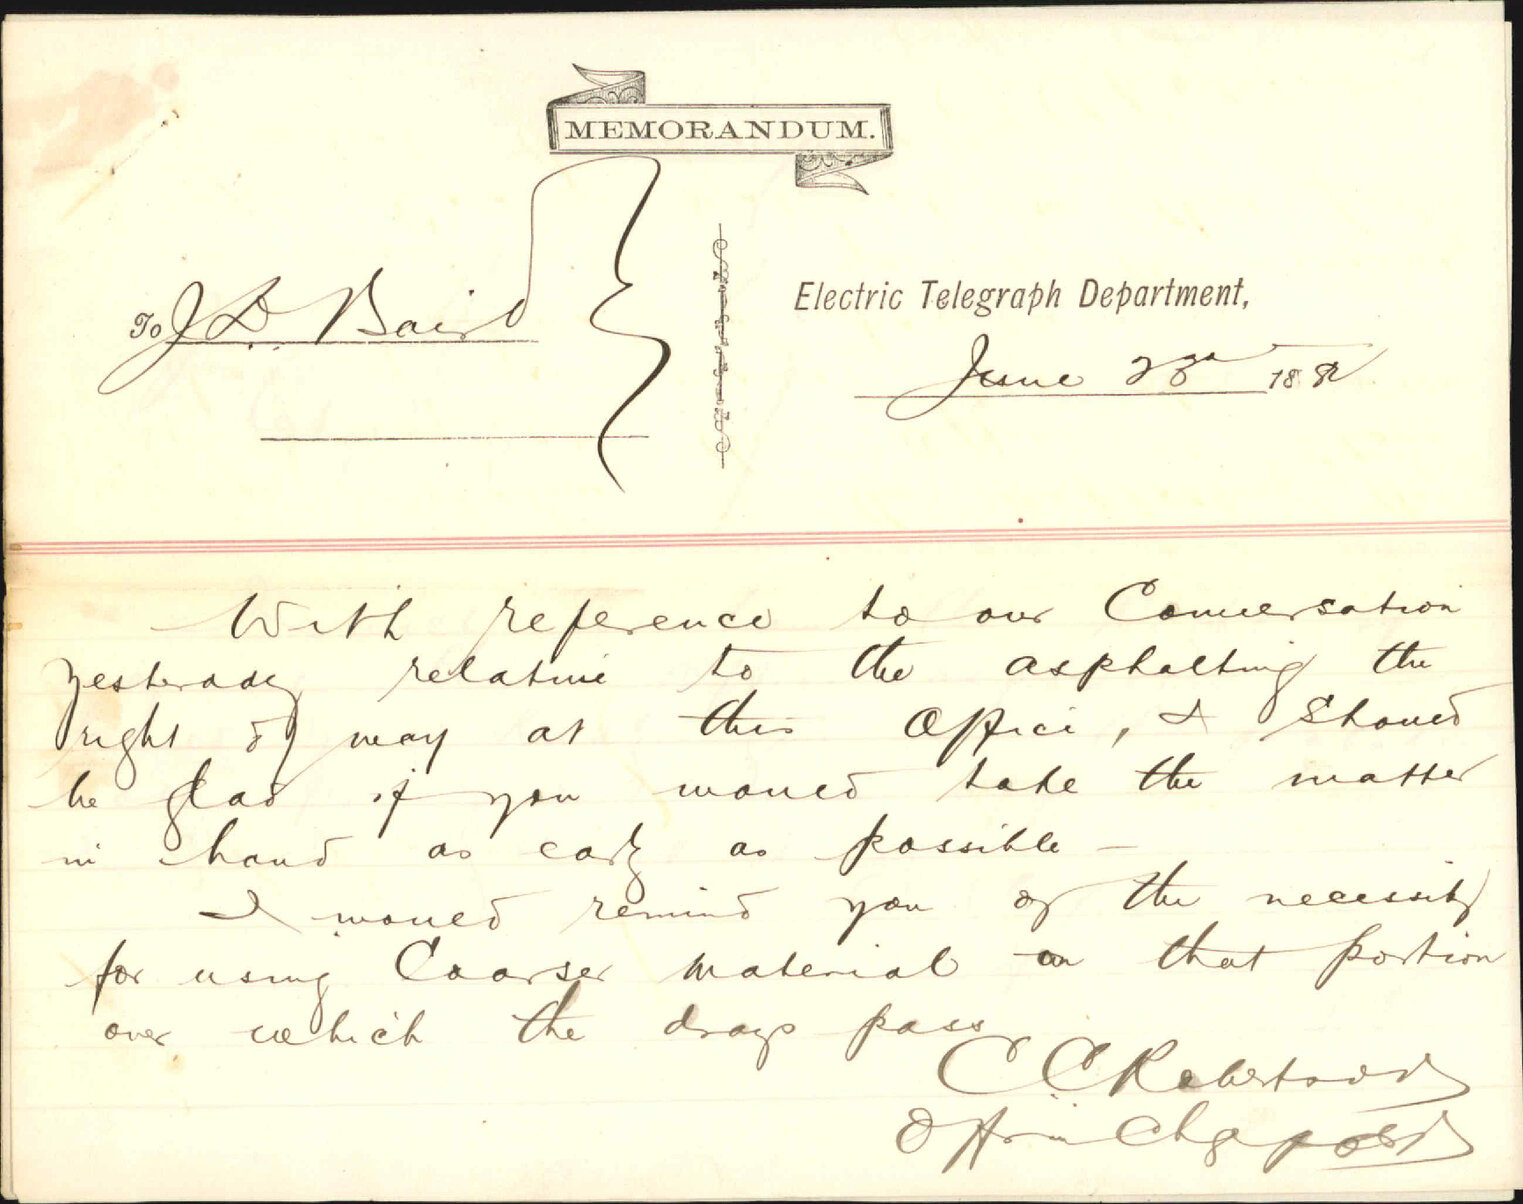 MEMORANDUM.
To J D. Baird
Electric Telegraph Department,
June 23rd 1882
With reference to our Conversation
yesterday relative to the asphalting the
right of way at this Office, I should
be glad if you would take the matter
in hand as early as possible –
I would remind you of the necessity
for using Coarser material on that portion
over which the drays pass
C C Robertson
Offr in Chge